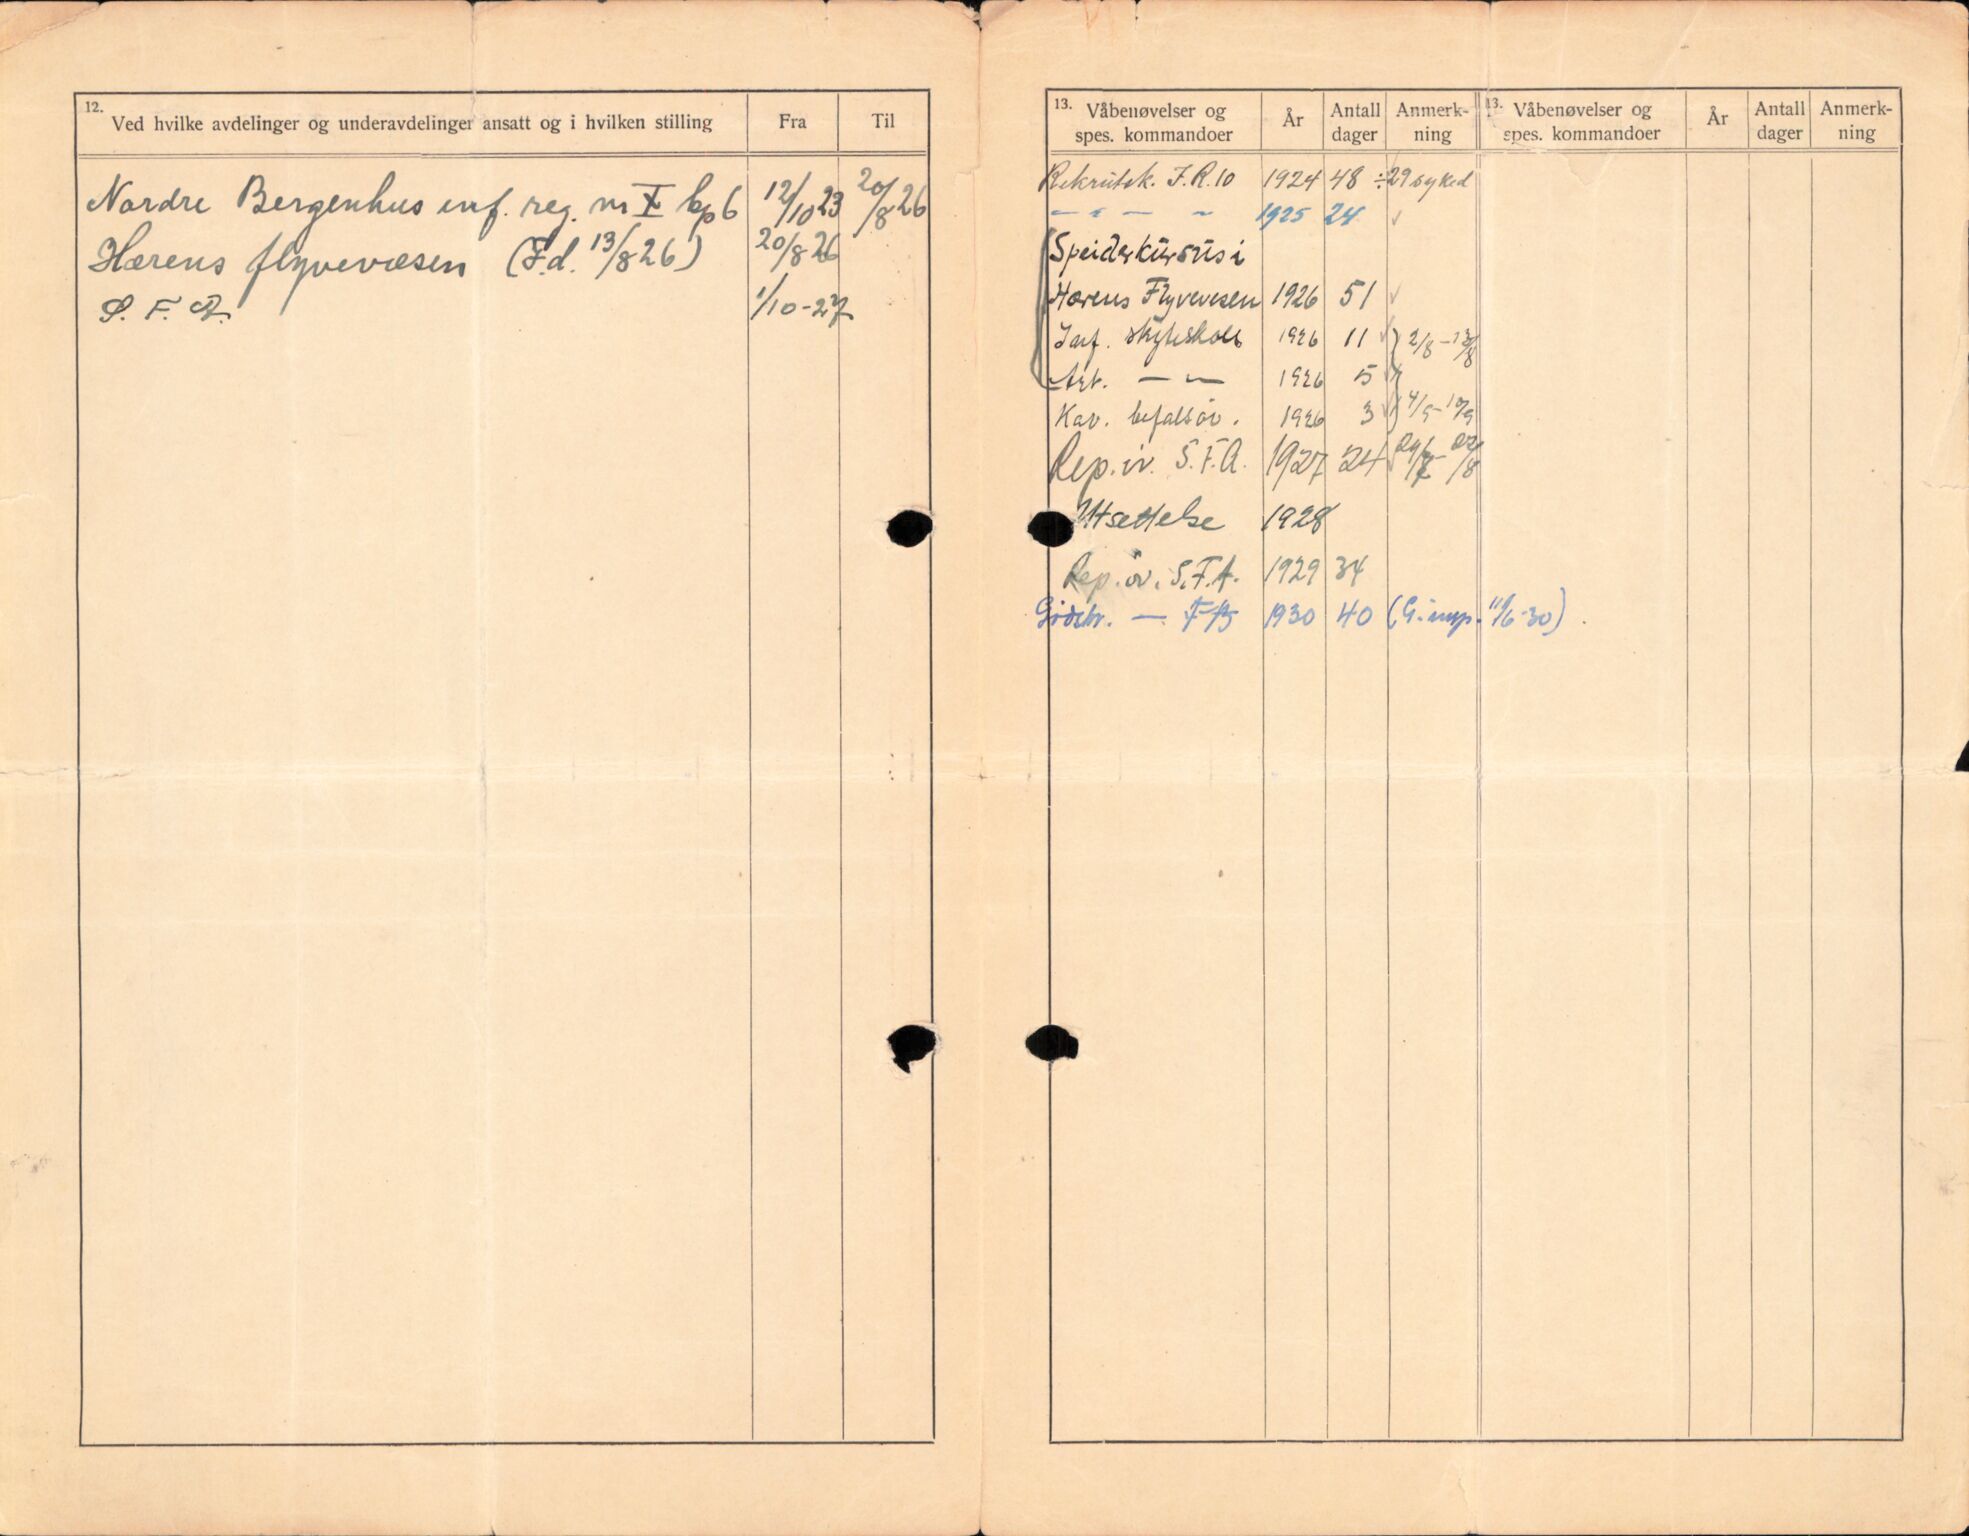 12.
Ved hvilke avdelinger og underavdelinger ansatt og i hvilken stilling Fra Til
Nordre Bergenhus inf. reg. nr X kp 6 12/10 23 20/8 26
Hærens flyvevæsen (F.d. 13/8 26) 20/8 26
S. F. A. 1/10-27
13. Våbenøvelser og spes. kommandoer År Antall dager Anmerk-ning
Rekrutsk. I.R. 10 1924 48 ÷29 syked
— " — " 1925 24 ✓
Speiderkursus i
Hærens Flyvevesen 1926 51 ✓
Inf. skyteskole 1926 11 ✓ } 2/8-13/8
Art. — " — 1926 5 ✓
Kav. befalsøv. 1926 3 ✓
Rep. øv. S.F.A. 1927 24 ✓
Utsettelse 1928
Rep. øv. S.F.A. 1929 34
1930 40 (G. insp. 11/6-30)
13. Våbenøvelser og spes. kommandoer År Antall dager Anmerk-ning